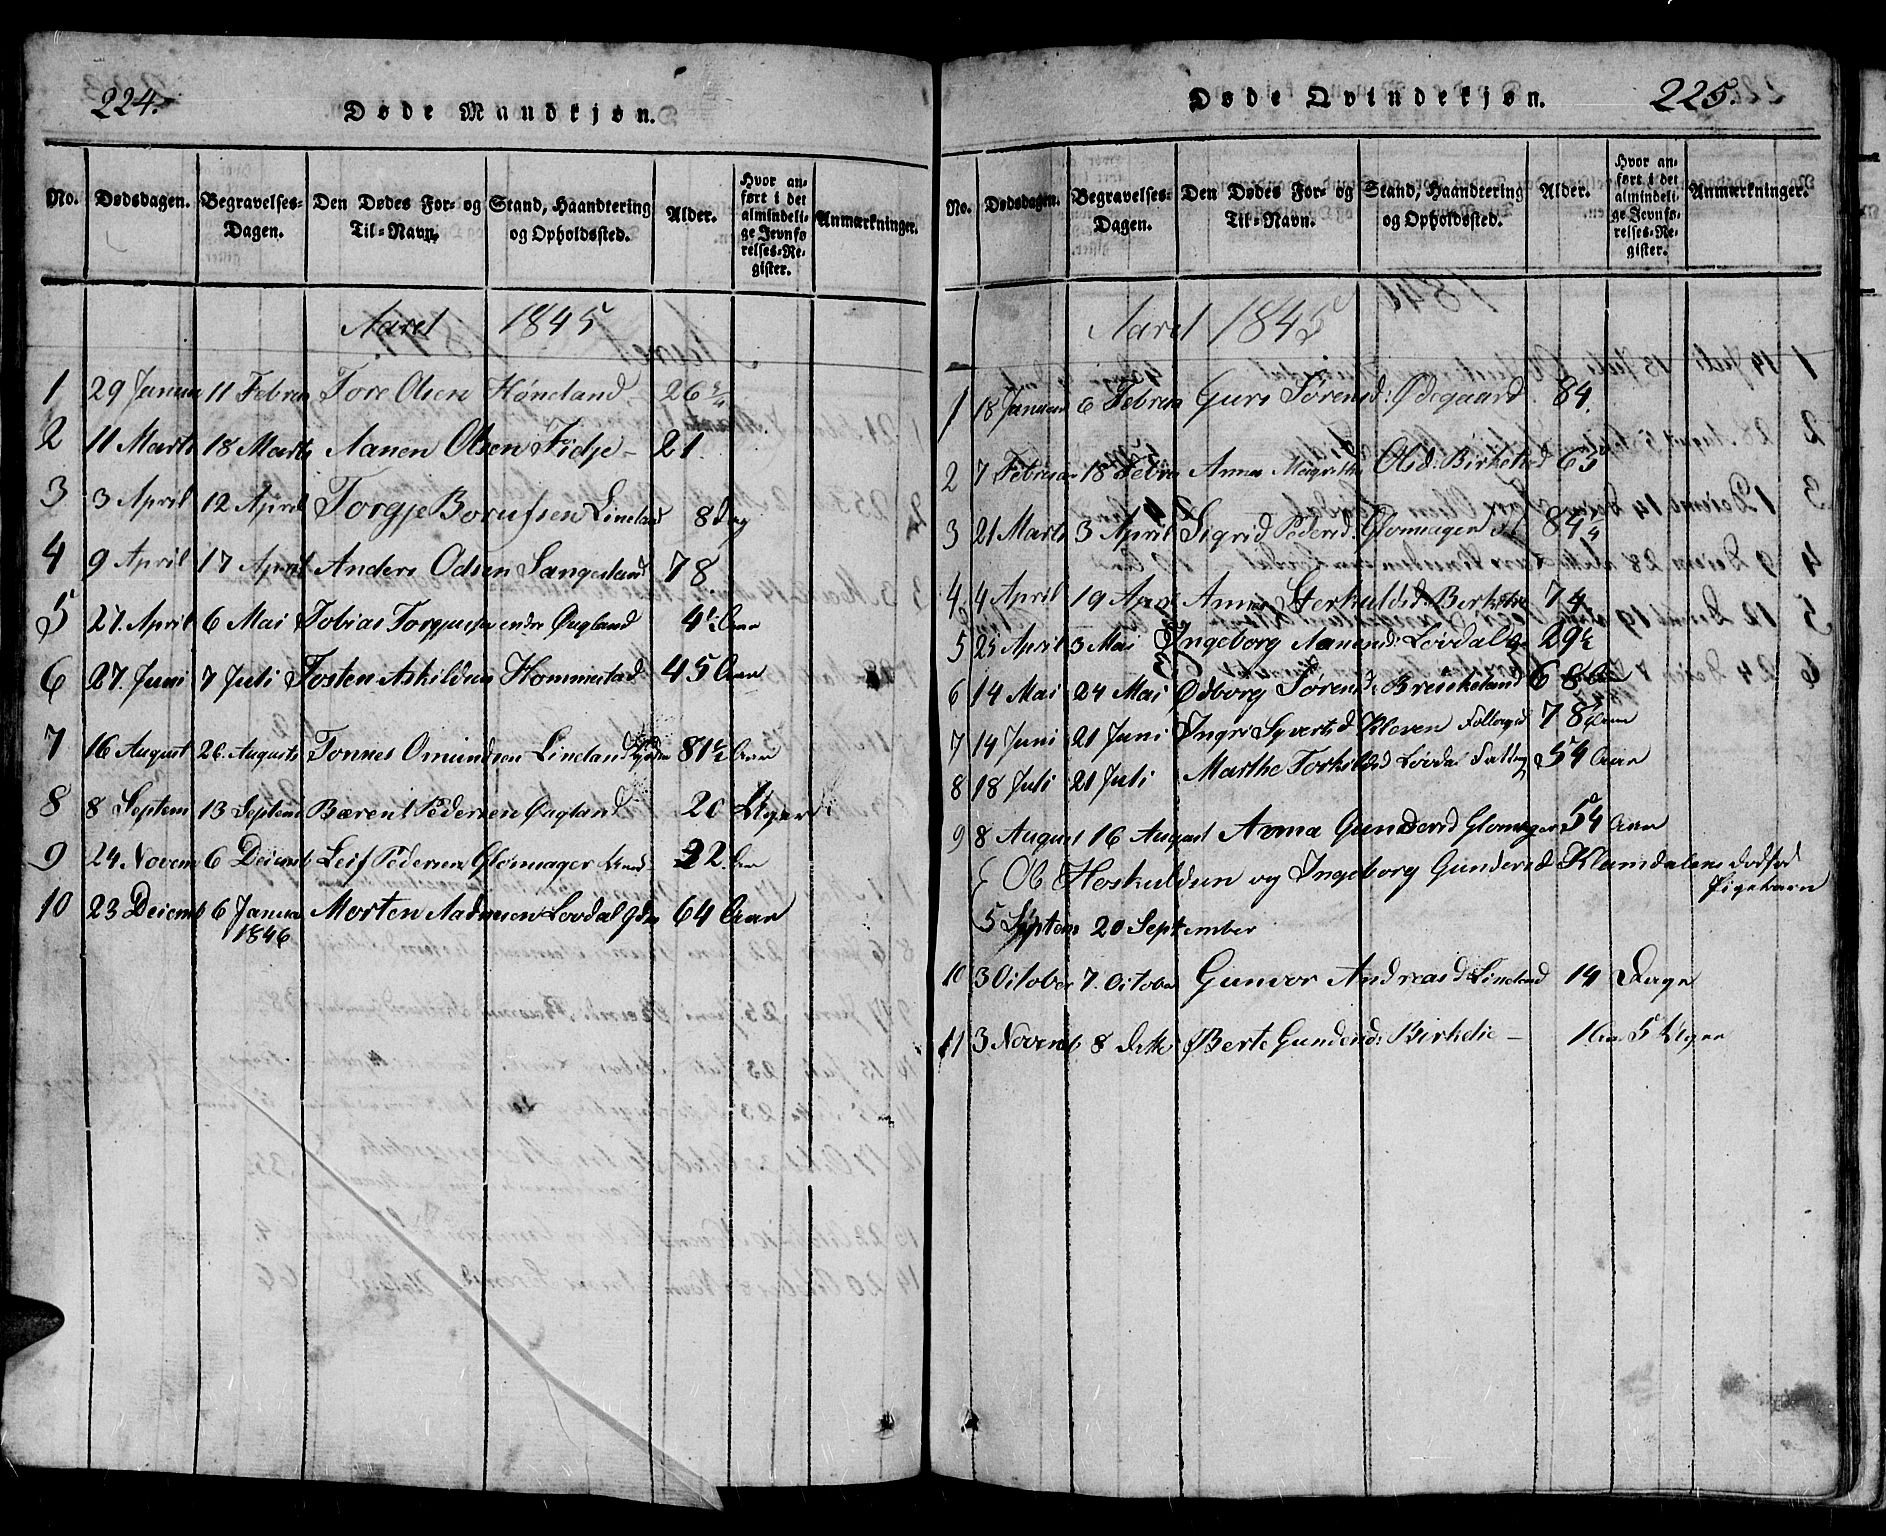 224.
Døde Mandkjøn.
No. Dødsdagen. Begravelses-Dagen. Den Dødes For- og Til-Navn. Stand, Haandtering og Opholdssted. Alder. Hvor anført i det almindelige Jevnførelses-Register. Anmærkninger.
Aaret 1845
1 29 Januar 11 Februar Tore Olsen Høneland 26 ¼
2 11 Marts 18 Marts Aanen Olsen Fidje - 21.
3 3 April 12 April Torgje Borufsen Lineland 8 Dag
4 9 April 17 April Anders Odsen Langeland 78.
5 27. April 6 Mai Tobias Torgjusen Øugland 4½ Aar
6 27. Juni 7 Juli Tosten Askildsen Hommestad 45 Aar
7 16 August 26 Augusts Tonnes Omundsen Lineland 81½ Aar
8 8 Septem 13 Septem Bærent Pedersen Øugland 20 Uger
9 24 Novem 6 Decemb Leif Pedersen Glomsager 22 Aar
10 23 Decemb 6 Janua 1846 Morten Aadnesen Løvdal 64 Aar
225.
Døde Qvindekjøn.
No. Dødsdagen. Begravelses-Dagen. Den Dødes For- og Til-Navn. Stand, Haandtering og Opholdssted. Alder. Hvor anført i det almindelige Jevnførelses-Register. Anmærkninger.
Aaret 1845
1 18 Januar 6 Februar Guro Sørensd: Ødegaard 84.
2 7 Februar 18 Febru Anna Magrethe Olsd: Birketvd 63
3 21 Marts 3 April Sigrid Pedersd: Glomsager 84 ¼
4 4 April 19 April Anna Sterkulsd: Birketvd 74
5 25 April 3 Mai Ingeborg Aanensd: Løvdal 29½
6 14 Mai 24 Mai Ødborg Sørensd: Breilkeland 68 Aar
7 14 Juni 21 Juni Ingri Syvertsd Kleven 78 Aar
8 18 Juli 21 Juli Marthe Torkildsd Løvdal 54 Aar
9 8 August 16 August Anna Gundersd Glomsager 54 Aar
Ob Hoskuldsen og Ingeborg Gundersd Klumdalens dødfød Pigebarn
5 Septem 20 September
10 3 October 7. October Gunvor Andreasd Lineland 14 Dage
11 3 Novemb 8 Ditto Berte Gundersd: Birketie - 1 Aar 5 Uger